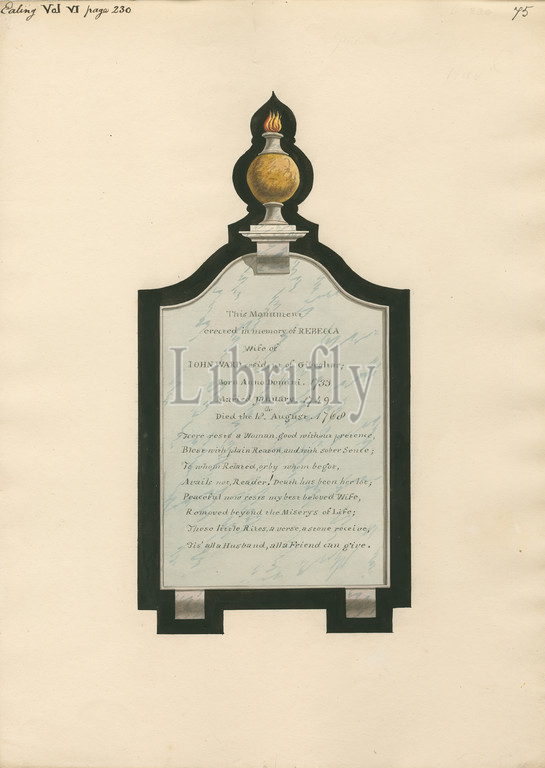 Ealing Vol VI page 230
75
This Monument
erected in memory of REBECCA
Wife of
IOHN WARD of
Born Anno Domini. 1733
January. 1749
Died the 18.th August. 1768
Here rests a Woman, good without pretence,
Blest with plain Reason, and with sober Sence;
To whom Related, or by whom begot,
Avails not, Reader! Death has been her lot;
Peaceful now rests my best beloved Wife,
Removed beyond the Miserys of Life;
These little Rites, a verse, a stone receive,
Tis' all a Husband, all a Friend can give.
Librifly